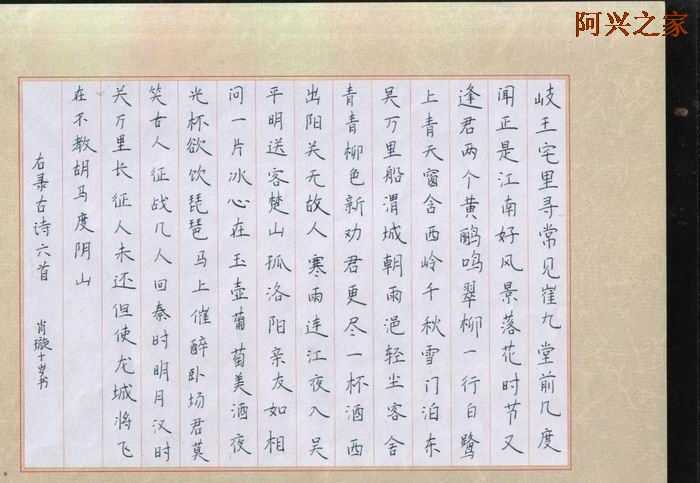 阿兴之家
岐王宅里寻常见崔九堂前几度
闻正是江南好风景落花时节又
逢君两个黄鹂鸣翠柳一行白鹭
上青天窗含西岭千秋雪门泊东
吴万里船渭城朝雨浥轻尘客舍
青青柳色新劝君更尽一杯酒西
出阳关无故人寒雨连江夜入吴
平明送客楚山孤洛阳亲友如相
问一片冰心在玉壶葡萄美酒夜
光杯欲饮琵琶马上催醉卧场君莫
笑女人征战几人回秦时明月汉时
关万里长征人未还但使龙城将飞
在不教胡马度阴山
右录古诗六首 肖璇十岁书